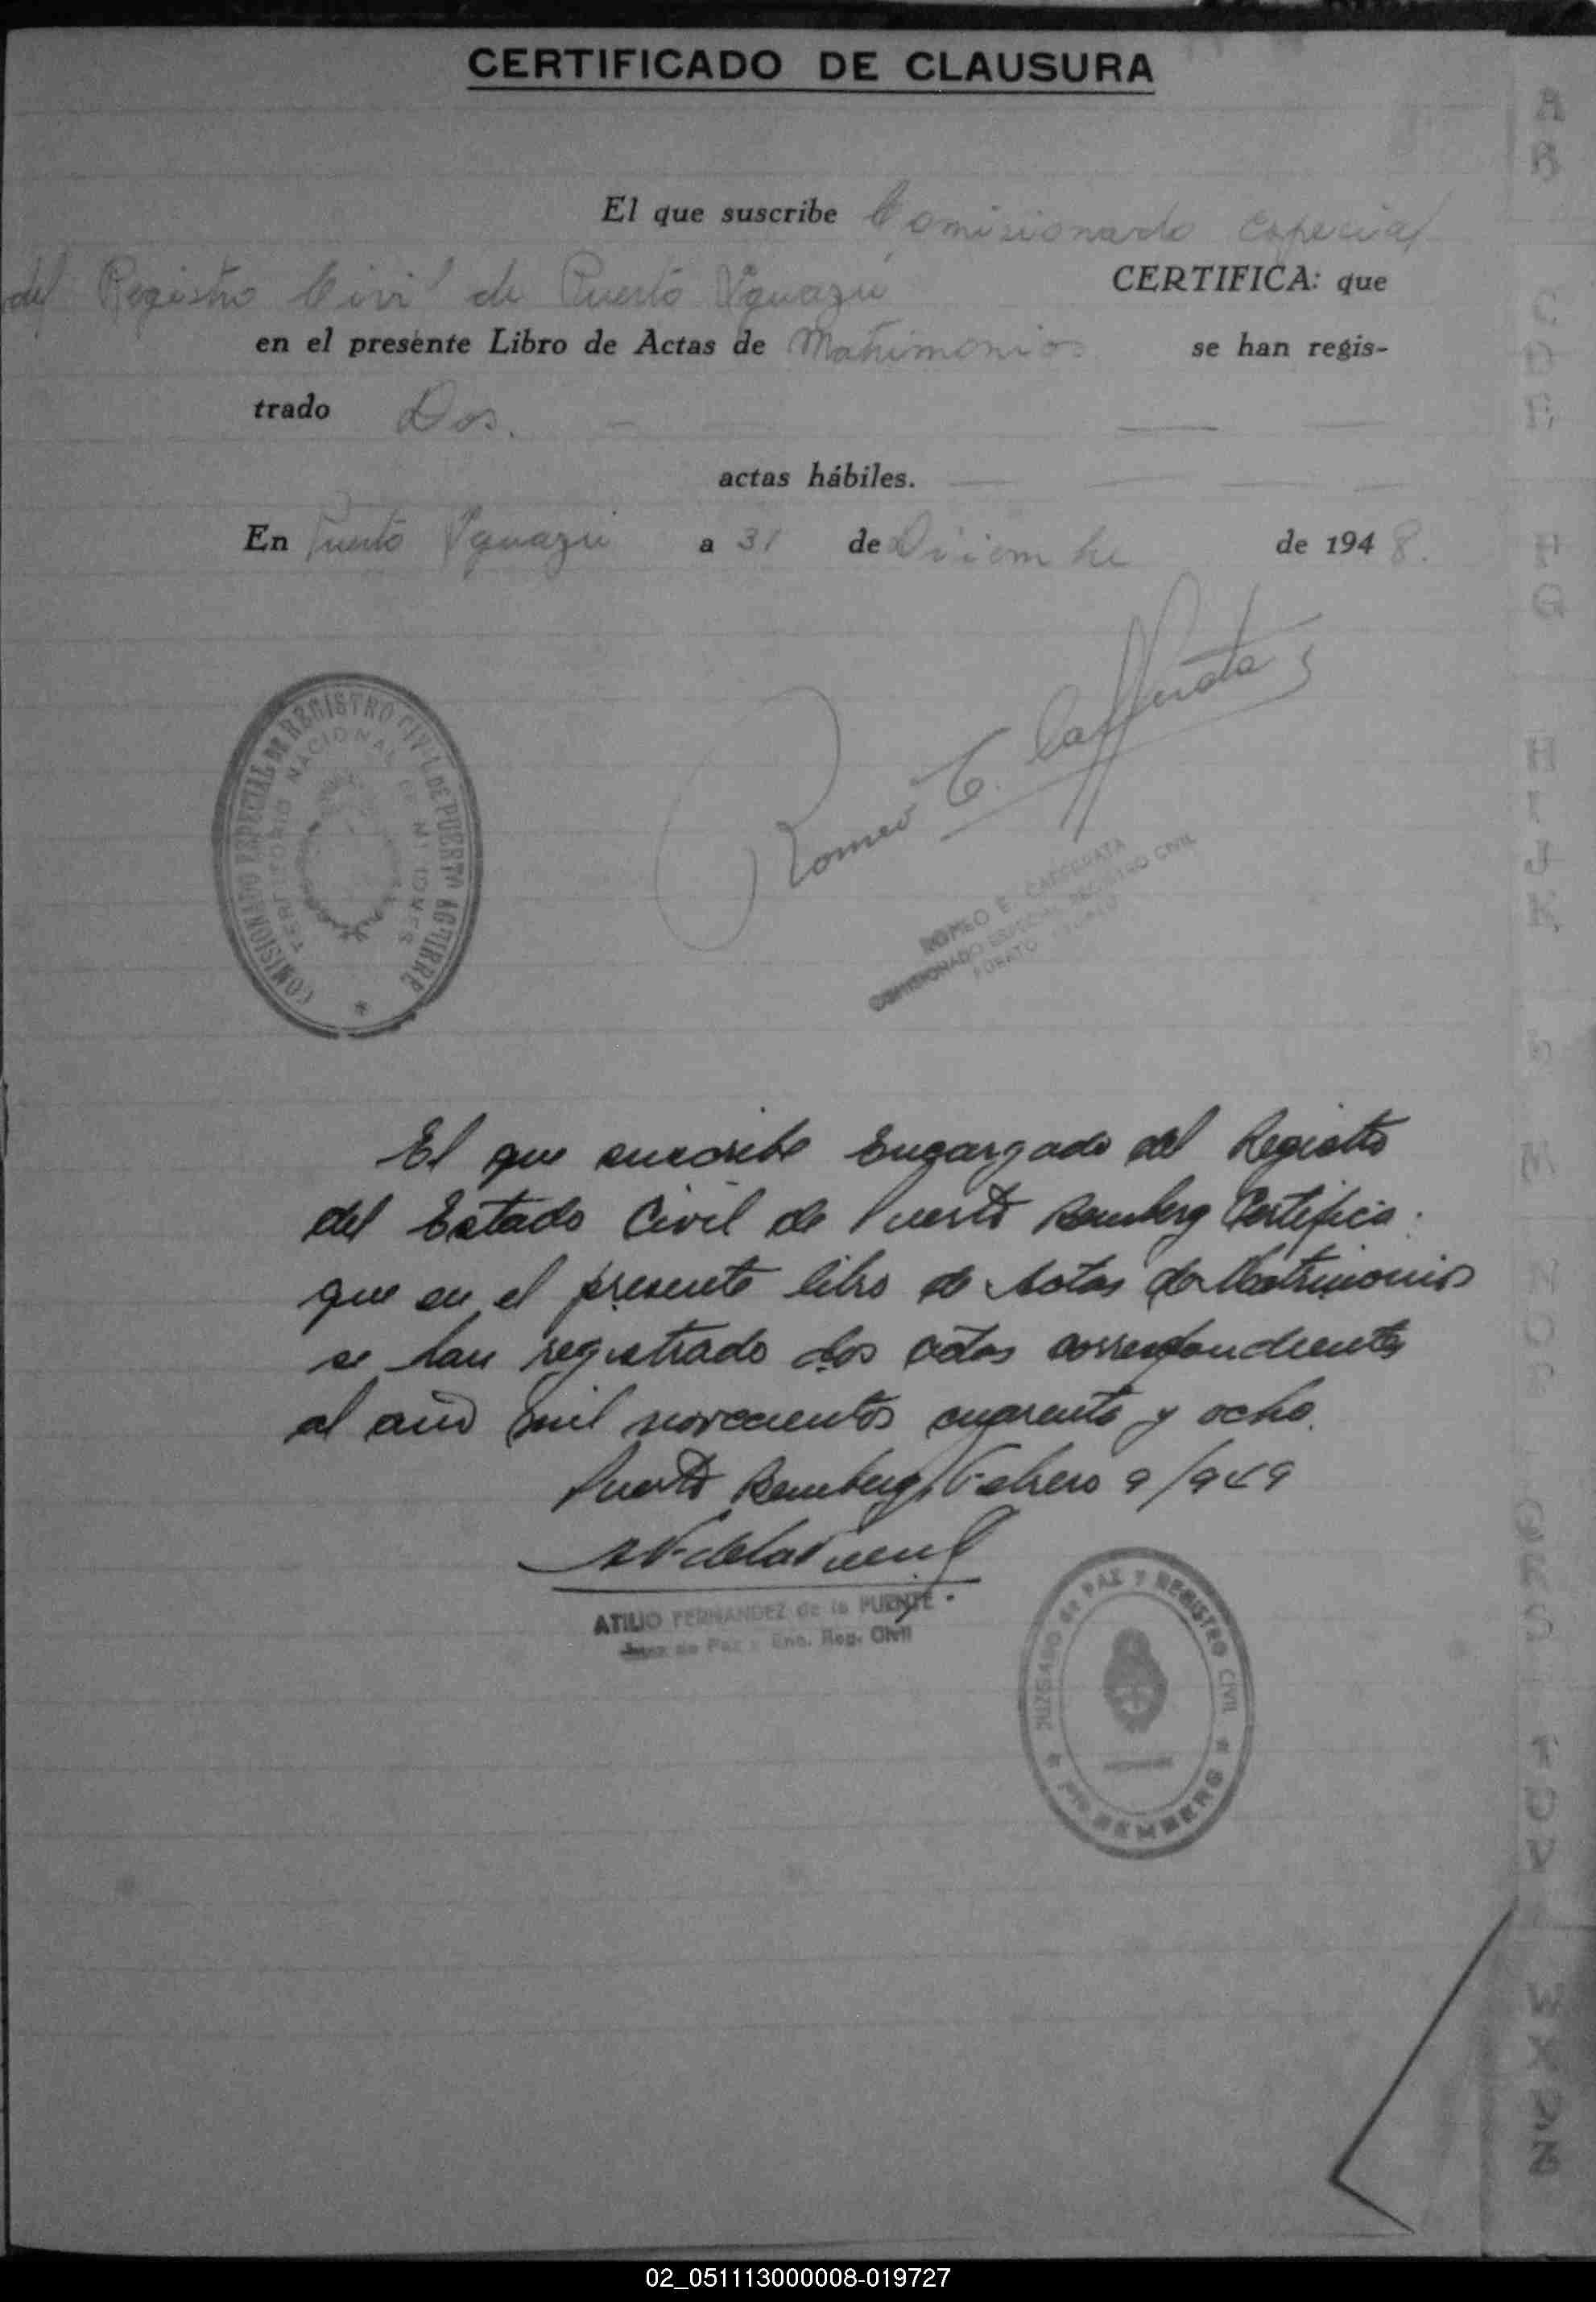 CERTIFICADO DE CLAUSURA
El que suscribe Comisionado Especial
del Registro Civil de Puerto Yguazú CERTIFICA: que
en el presente Libro de Actas de Matrimonios se han regis-
trado Dos.
actas hábiles.
En Puerto Yguazú a 31 de Diciembre de 1948.
COMISIONADO ESPECIAL DE REGISTRO CIVIL DE PUERTO AGUIRRE
TERRITORIO NACIONAL DE MISIONES
Romeo E. Cafferata
ROMEO E. CAFFERATA
COMISIONADO ESPECIAL REGISTRO CIVIL
PUERTO
El que suscribe Encargado del Registro
del Estado Civil de Puerto Bemberg Certifica:
que en el presente libro de Actas de Matrimonios
se han registrado dos actas correspondientes
al año mil novecientos cuarenta y ocho.
Puerto Bemberg, Febrero 9/949
ATILIO FERNANDEZ de la PUENTE
Juez de Paz y Enc. Reg. Civil
JUZGADO de PAZ Y REGISTRO CIVIL
PTO. BEMBERG
A
B
C
D
E
F
G
H
I
J
K
L
M
N
O
P
Q
R
S
T
U
V
W
X
Y
Z
02_051113000008-019727